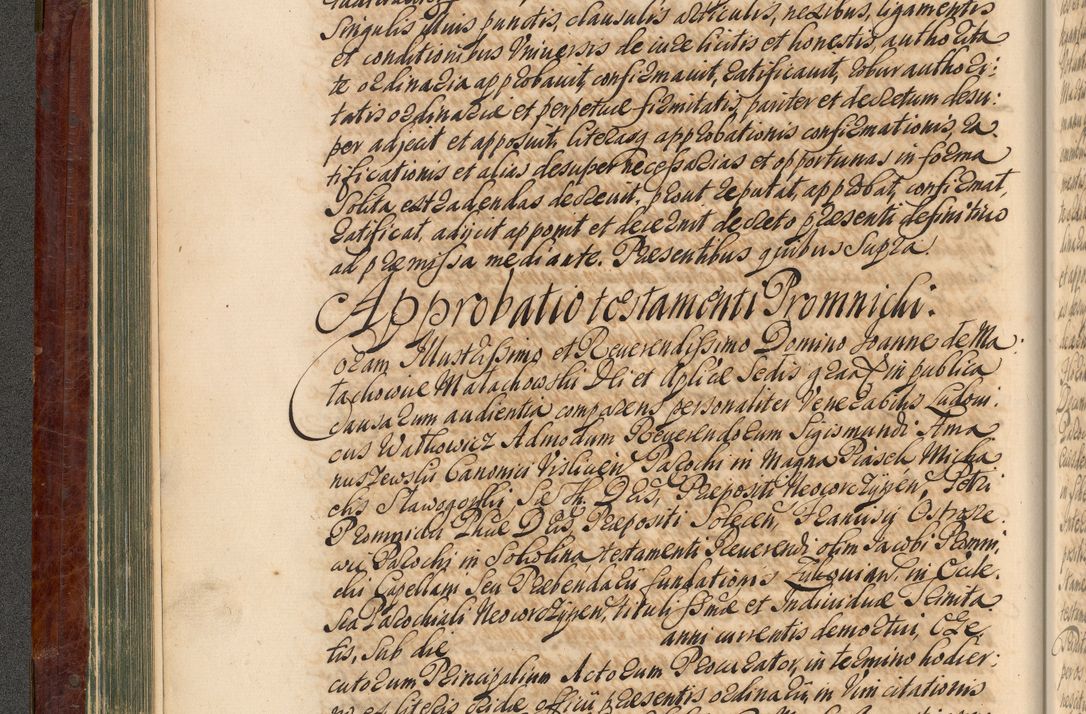 singulis suis punctis, clausulis articulis, nexibus, ligamentis
et conditionibus Vniuersis de iure licitis et honestis, authorita
te ordinaria approbauit, confirmauit, ratificauit, robur authori:
tatis ordinariæ et perpetuæ firmitatis, pariter et decretum desu:
per adjecit et apposuit, literasq approbationis confirmationis, ra
tificationis et alias desuper necessarias et opportunas in forma
solita, extradendas decreuit, prout reputat, approbat, confirmat,
ratificat, adijcit apponit et decernit decreto præsenti definitiuo
ad præmissa mediante. Præsentibus quibus supra.
Approbatio testamenti Promnichi:
Coram Illustrissimo et Reuerendissimo Domino Joanne de Ma:
łachowice Małachowski Dei et Aplicæ Sedis grat in publica
causarum audientia comparens personaliter Venerabilis Ludoui:
cus Watkowicz Admodum Reuerendorum Sigismundi Ama
nuszewski Canonici Vislicen, Parochi in Magna Piasek, Micha
elis Stawogorski, Sæ Th. Dris, Præpositi Neocorczynen, Petri
Promnicki Phiæ Dris Præpositi Solecen, Francisci Ostrore:
wu Parochi in Sokolina testamenti Reuerendi olim Jacobi Promni,
chi Capellani Seu Præbendarij fundationis in Eccle:
sia Parochiali Neocorczynen, tituli Ssmæ et Indiuiduæ Trinita
tis, sub die anni currentis demortui, Exe
cutorum Principalium Actorum Procurator, in termino hodier:
no ex literis cridæ officij præsentis ordinarij in Vim citationis